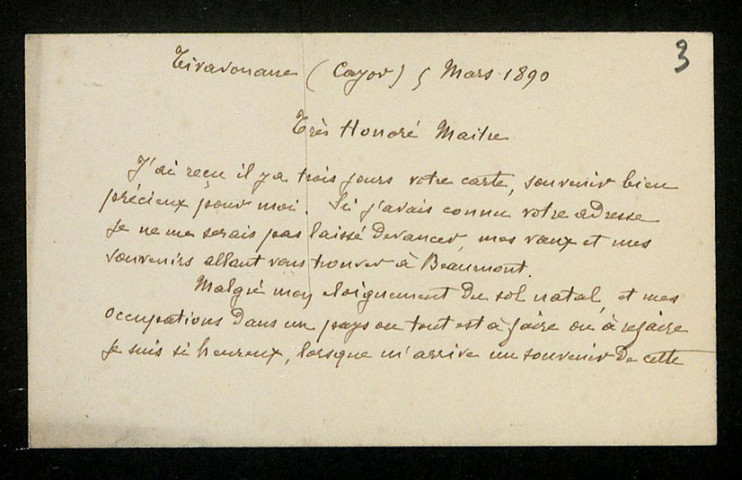 3
Tivavouane (Cayor) 5 Mars 1890
Très Honoré Maitre
J'ai reçu il y a trois jours votre carte, souvenir bien
précieux pour moi. Si j'avais connu votre adresse
je ne me serais pas laissé devancer, mes vœux et mes
souvenirs allant vous trouver à Beaumont.
Malgré mon éloignement du sol natal, et mes
occupations dans un pays ou tout est à faire ou à refaire
je suis si heureux, lorsque m'arrive un souvenir de cette